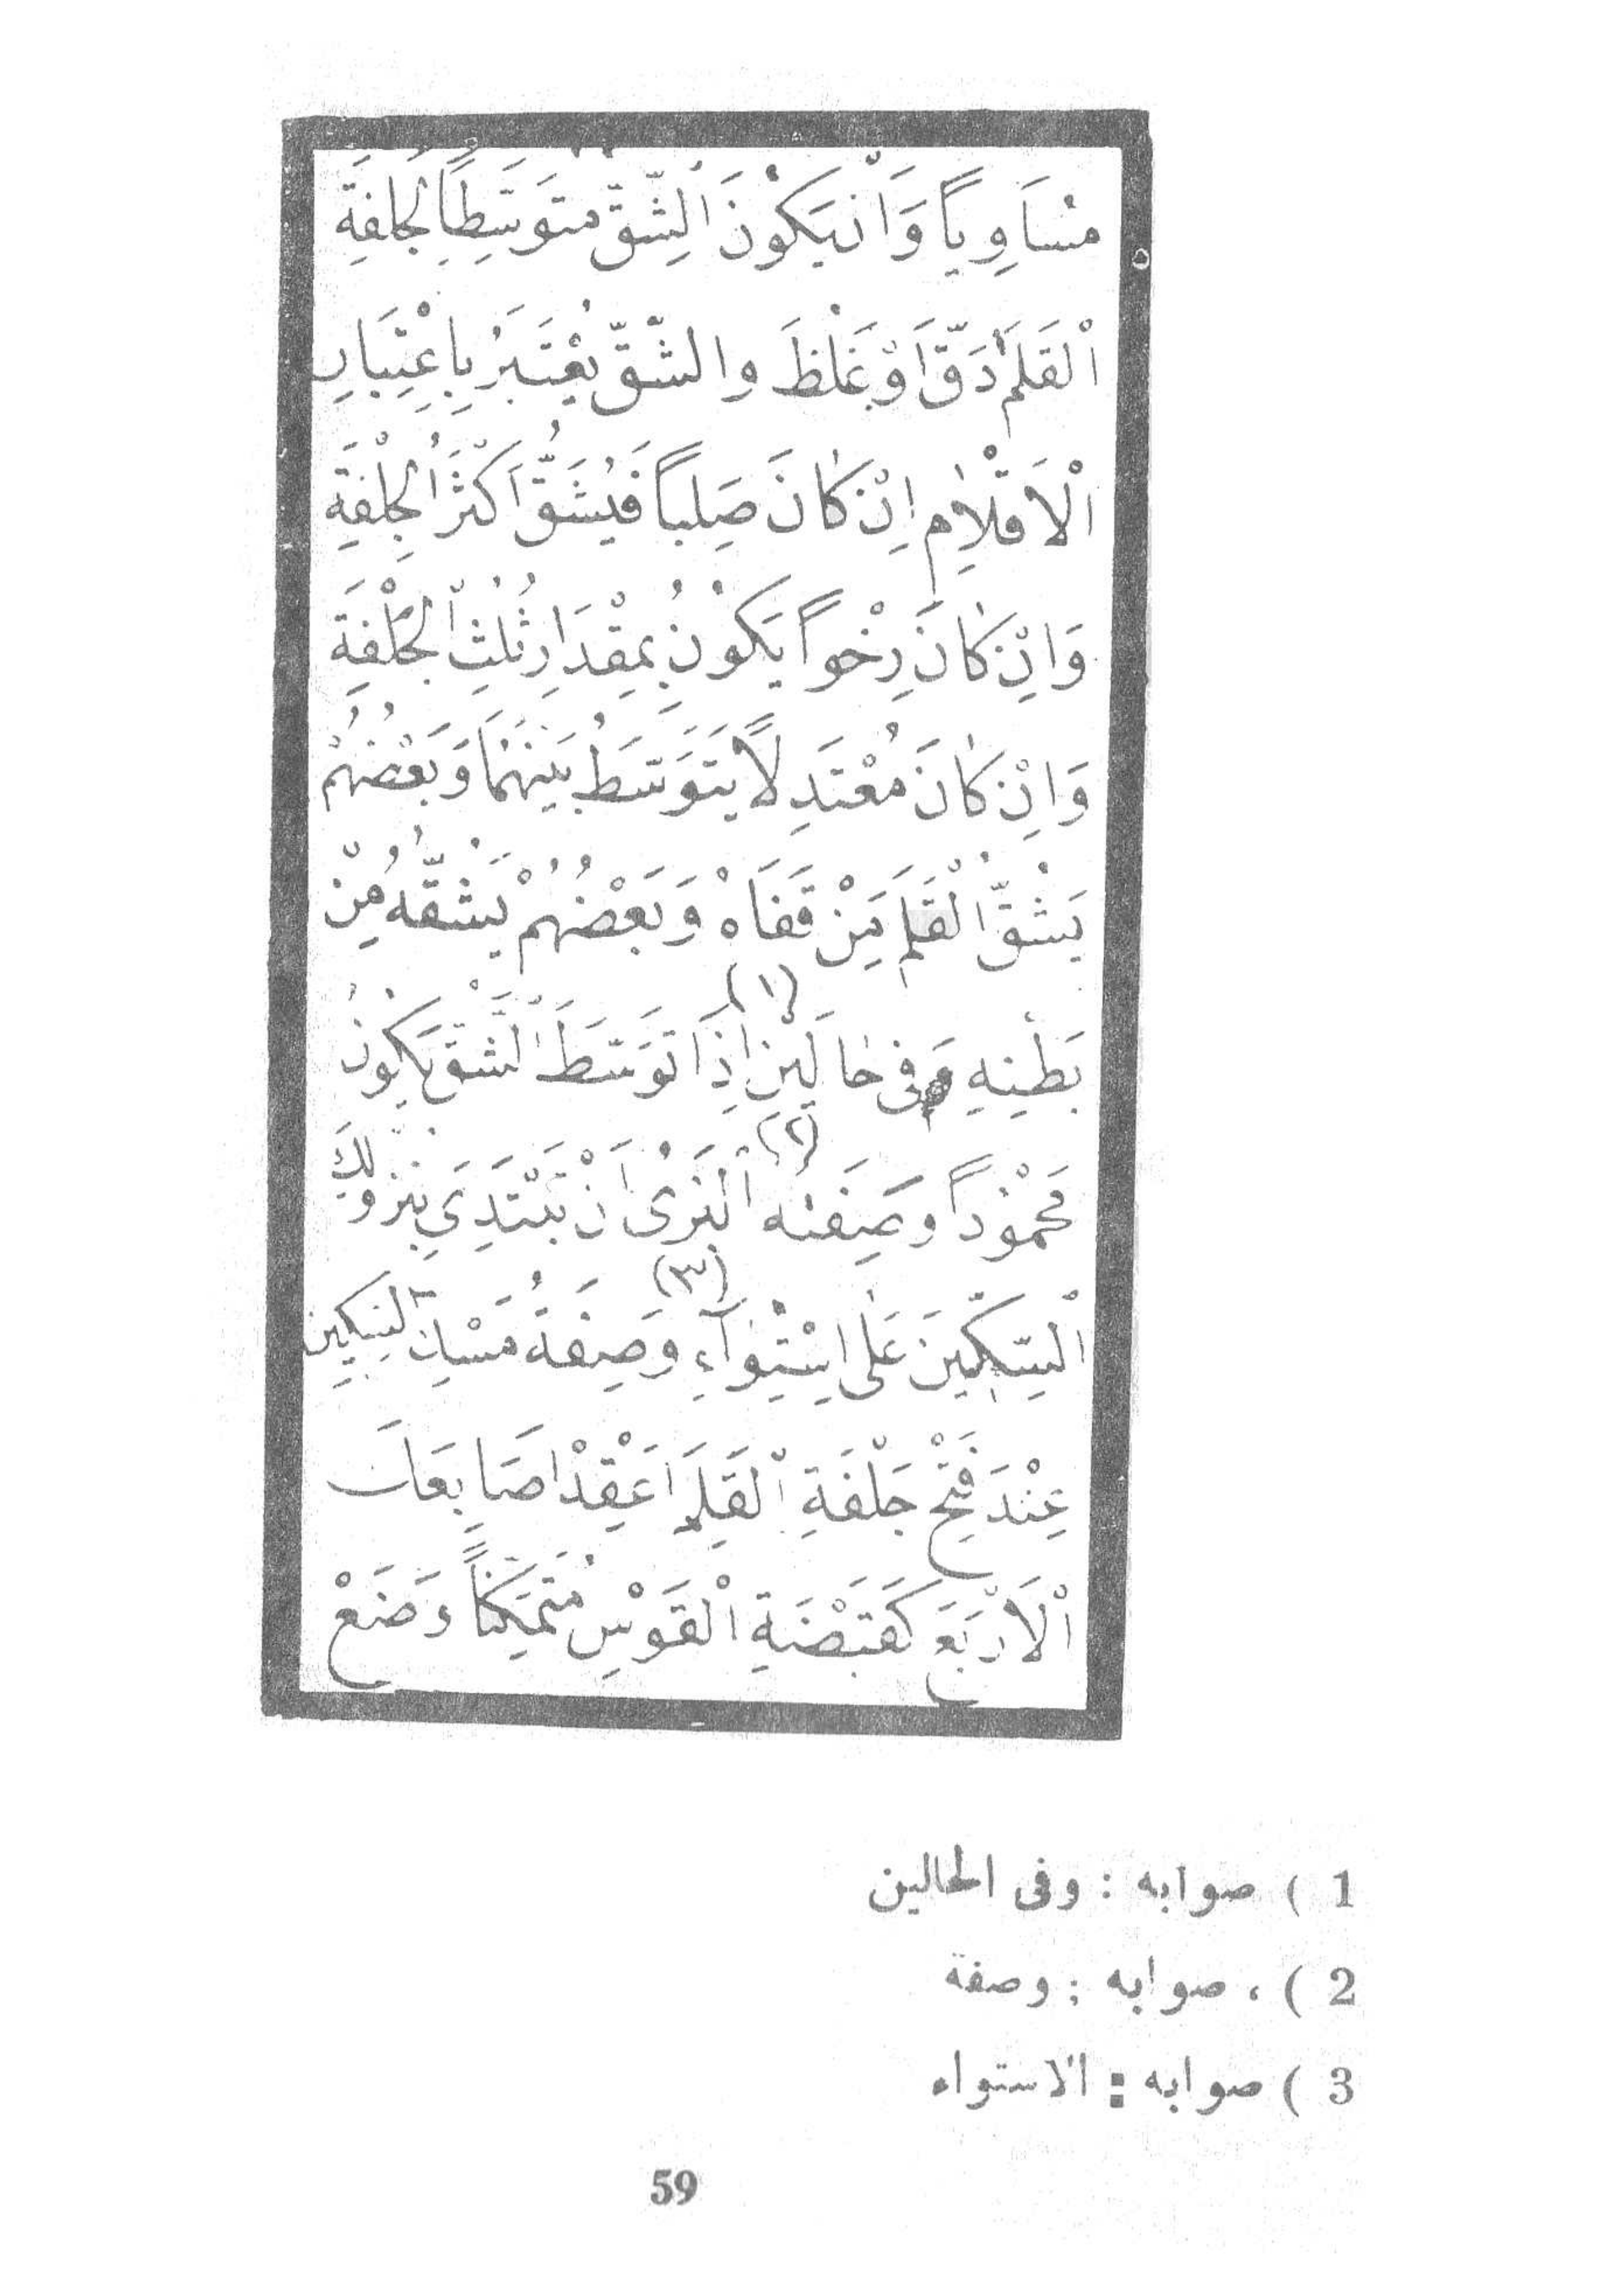 مُسَاوِياً وَاَنْ يَكُونَ الشِّقّ متَوَسِّطاً لِجُلْفَةِ
اْلقَلَمْ دَقَّ اَوْ غَلُظَ والشّقّ يُعْتَبَرُ بِاِعْتِبَارِ
اْلاَقْلاٰمِ اِنْ كَانَ صَلِباً فَيُشَقُّ اَكْثَرُ الْجِلْفَةِ
وَاِنْ كَانَ رِخْواً يَكُوْنُ بِمِقْدَارِ ثُلُثِ الْجُلْفَةِ
وَاِنْ كَانَ مُعْتَدِلاً يَتَوَسَّطُ بَيْنَهُمَا وَبَعْضُهُمْ
يَشْقُّ الْقَلَمَ مِنْ قَفَاهْ وَبَعْضُهُمْ يَشْقُّهُ مِنْ
بَطْنِهِ وَفى حٰالَيْنِ (١) اِذَا تَوَسَّطَ الشَّقّ يَكُونُ
مَحْمُوْداً وصِفَته (٢) اْلبَرْىُ اَنْ تَبْتَدِيَ بنزولك
اْلسِّكِّينَ عَلٰى اِسْتِوٰآءِ (٣) وَصِفَةُ مَسْك السِّكِين
عِنْدَ فَتْحِ جَلْفَةِ اْلقَلَم اَعْقِدْ اصَابِعَك
اْلاَرْبَعَ كَقَبْضَةِ الْقَوْسِ مُتَمَكِّناً وَضَعْ
1 ) صوابه : وفى الحالين
2 ) ، صوابه : وصفة
3 ) صوابه : الاستواء
59